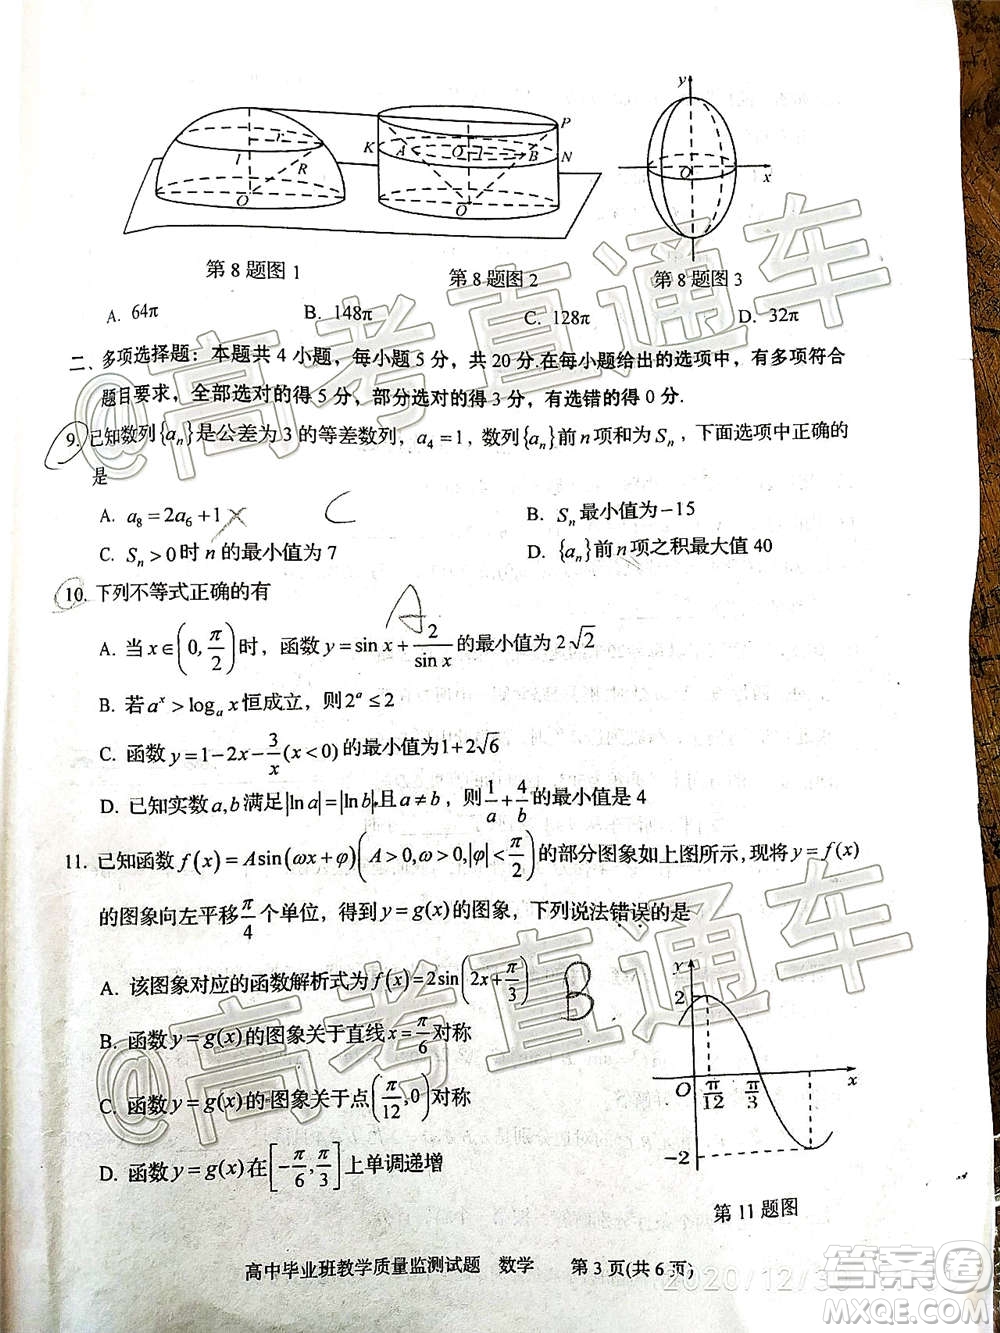 y
P
K
A
O
B
N
r
l
R
O
O
O
x
第8题图1
第8题图2
第8题图3
A. 64π
B. 148π
C. 128π
D. 32π
二、多项选择题：本题共4小题，每小题5分，共20分.在每小题给出的选项中，有多项符合
题目要求，全部选对的得5分，部分选对的得3分，有选错的得0分.
9. 已知数列{aₙ}是公差为3的等差数列，a₄=1，数列{aₙ}前n项和为Sₙ，下面选项中正确的
是
A. a₈=2a₆+1 ×
C
B. Sₙ最小值为-15
C. Sₙ>0时n的最小值为7
D. {aₙ}前n项之积最大值40
10. 下列不等式正确的有
A
A. 当x∈(0,π/2)时，函数y=sin x+2/sin x的最小值为2√2
B. 若aˣ>logₐx恒成立，则2ᵃ≤2
C. 函数y=1-2x-3/x(x<0)的最小值为1+2√6
D. 已知实数a,b满足|ln a|=|ln b|且a≠b，则1/a+4/b的最小值是4
11. 已知函数f(x)=Asin(ωx+φ)(A>0,ω>0,|φ|<π/2)的部分图象如上图所示,现将y=f(x)
的图象向左平移π/4个单位，得到y=g(x)的图象，下列说法错误的是
A. 该图象对应的函数解析式为f(x)=2sin(2x+π/3)
B
B. 函数y=g(x)的图象关于直线x=π/6对称
C. 函数y=g(x)的图象关于点(π/12,0)对称
D. 函数y=g(x)在[-π/6,π/3]上单调递增
y
2
O
π/12
π/3
x
-2
第11题图
高中毕业班教学质量监测试题 数学 第3页(共6页)
@高考直通车
@高考直通车
答案圈
MXQE.COM